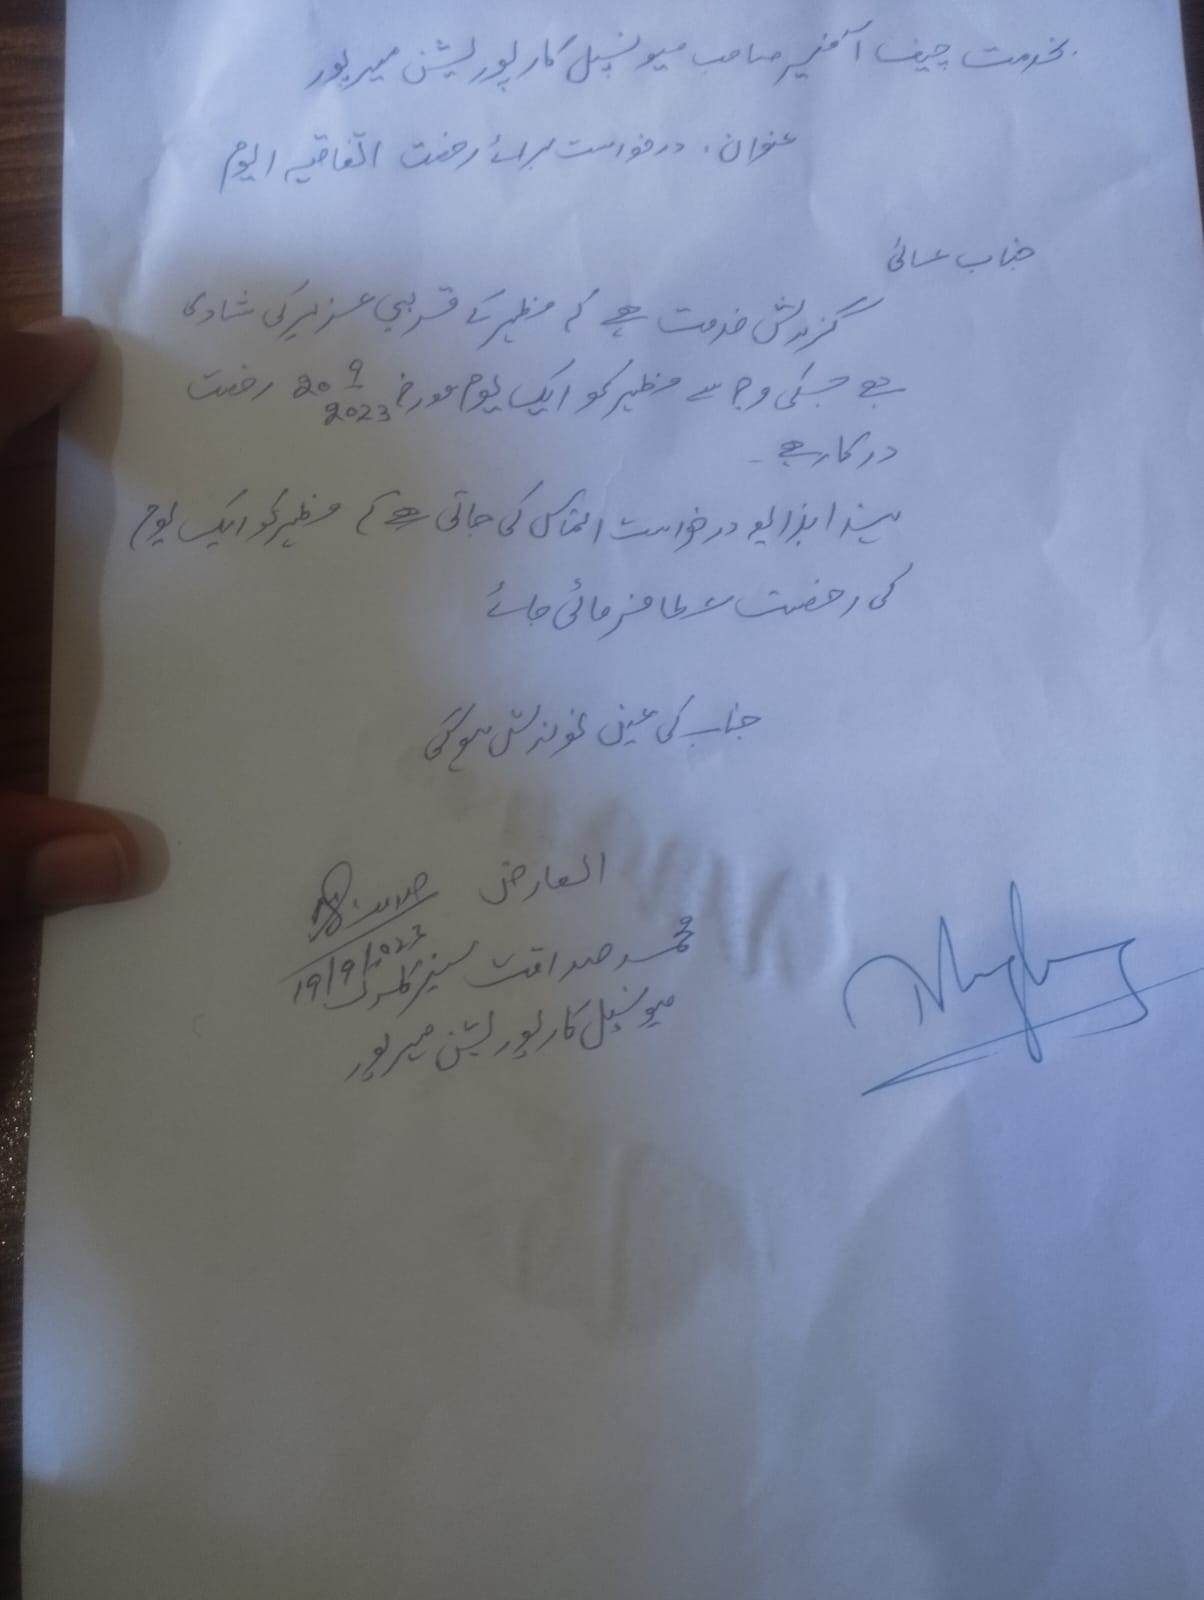 بخدمت چیف آفیسر صاحب میونسپل کارپوریشن میرپور
عنوان: درخواست برائے رخصت اتفاقیہ ایوم
جناب عالی
گزارش خدمت ہے کہ مظہر کے قریبی عزیز کی شادی
ہے جسکی وجہ سے مظہر کو ایک یوم مورخہ 20 9 2023 رخصت
درکار ہے۔
درخواست التماس کی جاتی ہے کہ مظہر کو ایک یوم
کی رخصت عطا فرمائی جائے
جناب کی عین نوازش ہوگی
العارض صداقت
19/9/2023
محمد صداقت سینئر کلرک
میونسپل کارپوریشن میرپور